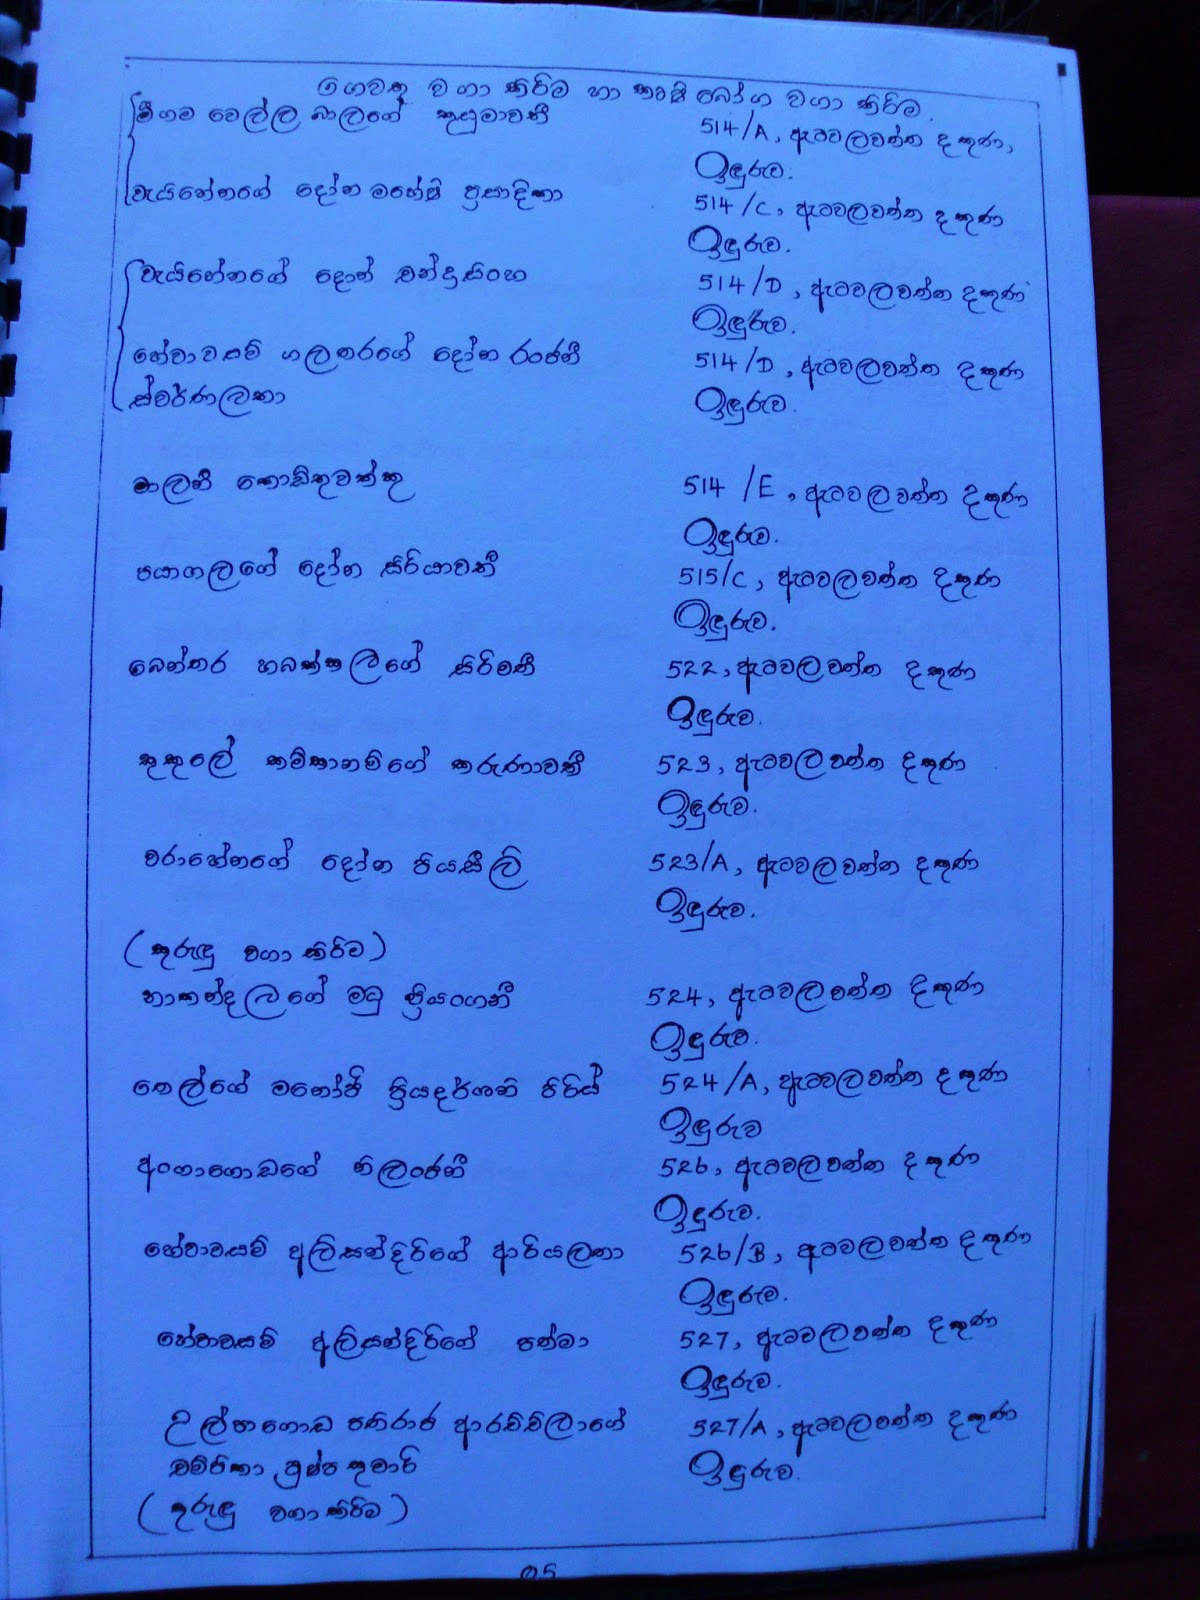 ගෙවතු වගා කිරිම හා කෘෂි බෝග වගා කිරිම.
මීගම වෙල්ල බාලගේ කුසුමාවතී 514/A, ඇටවලවත්ත දකුණ,
ඉඳුරුව.
වැයිහේනගේ දෝන මහේෂි ප්‍රසාදිකා 514/C, ඇටවලවත්ත දකුණ
ඉඳුරුව.
වැයිහේනගේ දොන් චන්ද්‍රසිංහ 514/D, ඇටවලවත්ත දකුණ
ඉඳුරුව.
හේවාවසම් ගලතරගේ දෝන රංජනී 514/D, ඇටවලවත්ත දකුණ
ස්වර්ණලතා ඉඳුරුව.
මාලනී කොඩිතුවක්කු 514/E, ඇටවලවත්ත දකුණ
ඉඳුරුව.
පයාගලගේ දෝන සිරියාවතී 515/C, ඇටවලවත්ත දකුණ
ඉඳුරුව.
බෙන්තර හබක්කලගේ සිරිමතී 522, ඇටවලවත්ත දකුණ
ඉඳුරුව.
කුකුලේ කම්කානම්ගේ කරුණාවතී 523, ඇටවලවත්ත දකුණ
ඉඳුරුව.
වරාහේනගේ දෝන පියසීලි 523/A, ඇටවලවත්ත දකුණ
ඉඳුරුව.
(කුරුඳු වගා කිරිම)
නාකන්දලගේ මධු ප්‍රියංගනී 524, ඇටවලවත්ත දකුණ
ඉඳුරුව.
තෙල්ගේ මනෝජි ප්‍රියදර්ශනි පිරිස් 524/A, ඇටවලවත්ත දකුණ
ඉඳුරුව
අංගාගොඩගේ නිලංජනී 526, ඇටවලවත්ත දකුණ
ඉඳුරුව.
හේවාවසම් අලිසන්දිරිගේ ආරියලතා 526/B, අටවලවත්ත දකුණ
ඉඳුරුව.
හේවාවසම් අලිසන්දිරිගේ පත්මා 527, ඇටවලවත්ත දකුණ
ඉඳුරුව.
උල්පාගොඩ පතිරාජ ආරච්චිලාගේ 527/A, ඇටවලවත්ත දකුණ
චම්පිකා පුෂ්ප කුමාරි ඉඳුරුව.
(කුරුඳු වගා කිරිම)
05